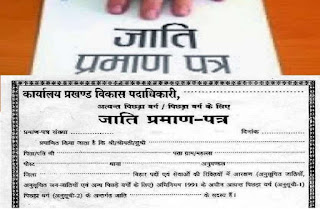 जाति
प्रमाण पत्र
कार्यालय प्रखण्ड विकास पदाधिकारी,
अत्यन्त पिछड़ा वर्ग / पिछड़ा वर्ग के लिए
जाति प्रमाण-पत्र
प्रमाण-पत्र संख्या दिनांक
प्रमाणित किया जाता है कि श्री/श्रीमती/सुश्री
पिता/पति श्री पता ग्राम/मुहल्ला
पोस्ट थाना अनुमण्डल
जिला बिहार पदों एवं सेवाओं की रिक्तियों में आरक्षण (अनुसूचित जातियों,
अनुसूचित जन-जातियों एवं अन्य पिछड़े वर्गों के लिए) अधिनियम 1991 के अधीन अत्यन्त पिछड़ा वर्ग (अनुसूची-1)
पिछड़ा वर्ग (अनुसूची-2) के अन्तर्गत जाति के सदस्य हैं।